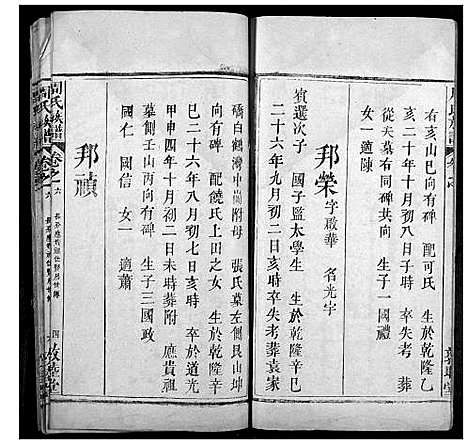 右亥山巳向有碑 配可氏 生於乾隆乙
亥二十年十月初八日子時 卒失考 葬
從夫墓亥山巳向有碑 生子一國禮
女一適陳
邦榮 字啟華 名光宇
貢選次子 國子監太學生 生於乾隆辛巳
二十六年九月初二日亥時 卒失考葬袁家
磅白鶴灣中 附母 張氏墓左側艮山坤
向有碑 配饒氏上田之女 生於乾隆辛
巳二十六年八月初七日亥時 卒於道光
甲申四年十月初二日未時葬附 應貴祖
墓側壬山丙向有碑 生子三國政
國仁 國信 女一 適蕭
邦禎
周氏族譜 卷之六
敦